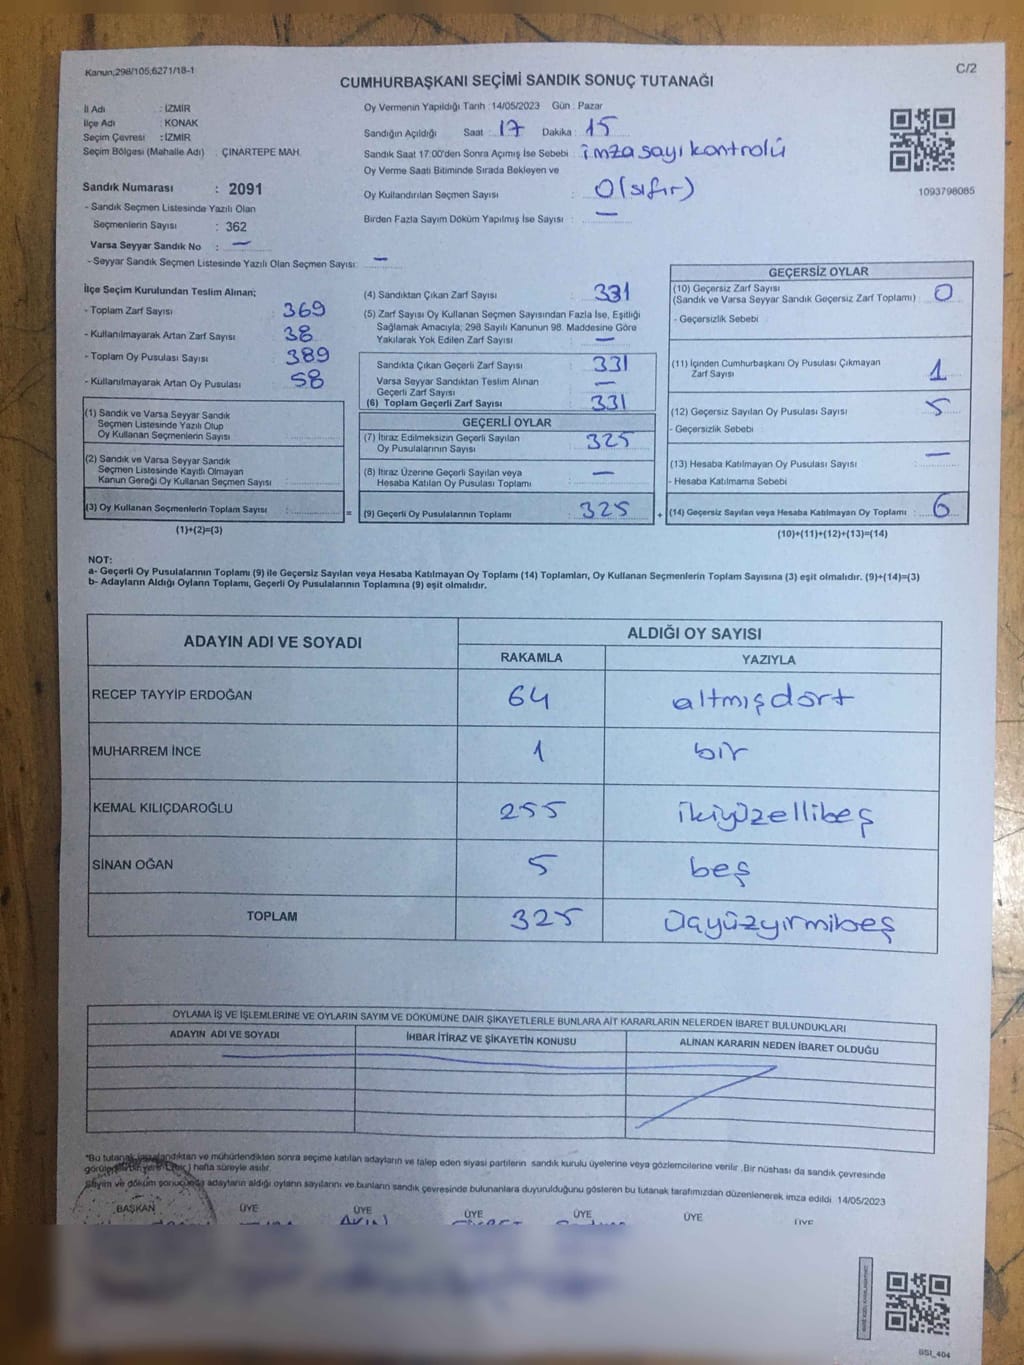 Kanun;298/105;6271/18-1
C/2
CUMHURBAŞKANI SEÇİMİ SANDIK SONUÇ TUTANAĞI
İl Adı : İZMİR
İlçe Adı : KONAK
Seçim Çevresi : İZMİR
Seçim Bölgesi (Mahalle Adı) : ÇINARTEPE MAH.
Sandık Numarası : 2091
- Sandık Seçmen Listesinde Yazılı Olan
Seçmenlerin Sayısı : 362
Varsa Seyyar Sandık No : —
- Seyyar Sandık Seçmen Listesinde Yazılı Olan Seçmen Sayısı: —
Oy Vermenin Yapıldığı Tarih :14/05/2023 Gün : Pazar
Sandığın Açıldığı Saat : 17 Dakika : 15
Sandık Saat 17:00'den Sonra Açımış İse Sebebi : imza sayı kontrolü
Oy Verme Saati Bitiminde Sırada Bekleyen ve
Oy Kullandırılan Seçmen Sayısı : 0 (sıfır)
Birden Fazla Sayım Döküm Yapılmış İse Sayısı : —
1093798085
İlçe Seçim Kurulundan Teslim Alınan;
- Toplam Zarf Sayısı : 369
- Kullanılmayarak Artan Zarf Sayısı : 38
- Toplam Oy Pusulası Sayısı : 389
- Kullanılmayarak Artan Oy Pusulası : 58
(1) Sandık ve Varsa Seyyar Sandık
Seçmen Listesinde Yazılı Olup
Oy Kullanan Seçmenlerin Sayısı :
(2) Sandık ve Varsa Seyyar Sandık
Seçmen Listesinde Kayıtlı Olmayan
Kanun Gereği Oy Kullanan Seçmen Sayısı :
(3) Oy Kullanan Seçmenlerin Toplam Sayısı :
(1)+(2)=(3)
(4) Sandıktan Çıkan Zarf Sayısı : 331
(5) Zarf Sayısı Oy Kullanan Seçmen Sayısından Fazla İse, Eşitliği
Sağlamak Amacıyla; 298 Sayılı Kanunun 98. Maddesine Göre
Yakılarak Yok Edilen Zarf Sayısı : —
Sandıkta Çıkan Geçerli Zarf Sayısı : 331
Varsa Seyyar Sandıktan Teslim Alınan
Geçerli Zarf Sayısı : —
(6) Toplam Geçerli Zarf Sayısı : 331
GEÇERLİ OYLAR
(7) İtiraz Edilmeksizin Geçerli Sayılan
Oy Pusulalarının Sayısı : 325
(8) İtiraz Üzerine Geçerli Sayılan veya
Hesaba Katılan Oy Pusulası Toplamı : —
= (9) Geçerli Oy Pusulalarının Toplamı : 325
GEÇERSİZ OYLAR
(10) Geçersiz Zarf Sayısı
(Sandık ve Varsa Seyyar Sandık Geçersiz Zarf Toplamı) : 0
- Geçersizlik Sebebi :
(11) İçinden Cumhurbaşkanı Oy Pusulası Çıkmayan
Zarf Sayısı : 1
(12) Geçersiz Sayılan Oy Pusulası Sayısı : 5
- Geçersizlik Sebebi :
(13) Hesaba Katılmayan Oy Pusulası Sayısı : —
- Hesaba Katılmama Sebebi :
+ (14) Geçersiz Sayılan veya Hesaba Katılmayan Oy Toplamı : 6
(10)+(11)+(12)+(13)=(14)
NOT:
a- Geçerli Oy Pusulalarının Toplamı (9) ile Geçersiz Sayılan veya Hesaba Katılmayan Oy Toplamı (14) Toplamları, Oy Kullanan Seçmenlerin Toplam Sayısına (3) eşit olmalıdır. (9)+(14)=(3)
b- Adayların Aldığı Oyların Toplamı, Geçerli Oy Pusulalarının Toplamına (9) eşit olmalıdır.
ADAYIN ADI VE SOYADI ALDIĞI OY SAYISI
RAKAMLA YAZIYLA
RECEP TAYYİP ERDOĞAN 64 altmışdört
MUHARREM İNCE 1 bir
KEMAL KILIÇDAROĞLU 255 ikiyüzellibeş
SİNAN OĞAN 5 beş
TOPLAM 325 üçyüzyirmibeş
OYLAMA İŞ VE İŞLEMLERİNE VE OYLARIN SAYIM VE DÖKÜMÜNE DAİR ŞİKAYETLERLE BUNLARA AİT KARARLARIN NELERDEN İBARET BULUNDUKLARI
ADAYIN ADI VE SOYADI İHBAR İTİRAZ VE ŞİKAYETİN KONUSU ALINAN KARARIN NEDEN İBARET OLDUĞU
*Bu tutanak imzalandıktan ve mühürlendikten sonra seçime katılan adayların ve talep eden siyasi partilerin sandık kurulu üyelerine veya gözlemcilerine verilir .Bir nüshası da sandık çevresinde
görülebilir bir yere 1 (bir) hafta süreyle asılır.
Sayım ve döküm sonucunda adayların aldığı oyların sayılarını ve bunların sandık çevresinde bulunanlara duyurulduğunu gösteren bu tutanak tarafımızdan düzenlenerek imza edildi 14/05/2023
BAŞKAN ÜYE ÜYE ÜYE ÜYE ÜYE ÜYE
BSI_404